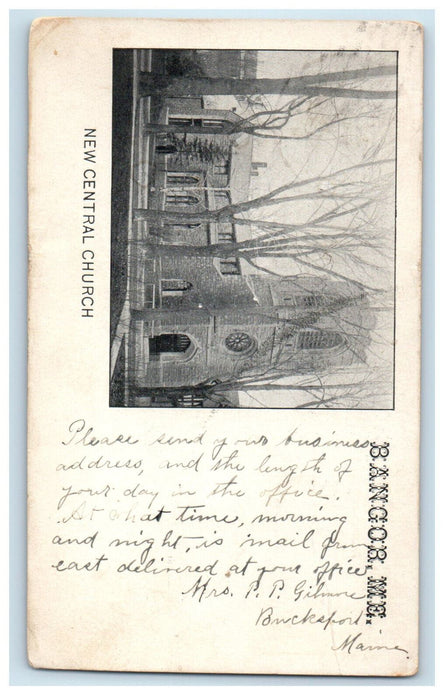 NEW CENTRAL CHURCH
BANGOR, ME.
Please send your business
address, and the length of
your day in the office.
At what time, morning
and night, is mail from
east delivered at your office
Mrs. P. P. Gilmore
Bucksport
Maine